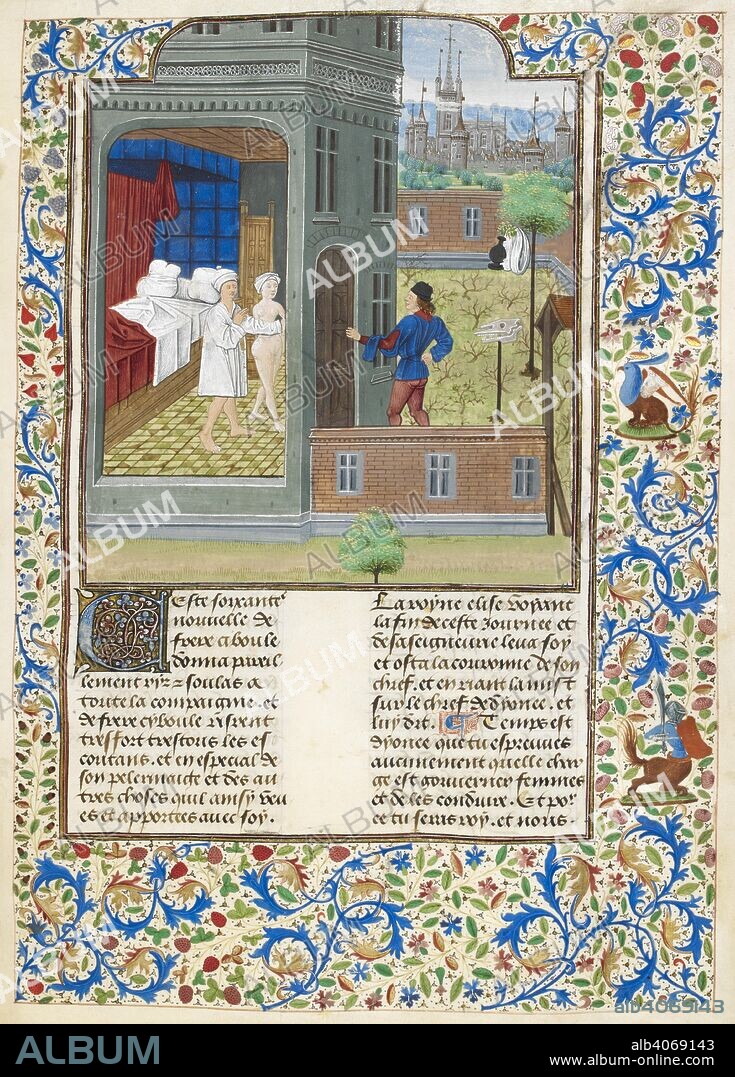 Ceste soixante
nouuelle de
frere ciboule
donna pareil
lement ris ⁊ soulas a
toute la compaignie. et
de frere cyboule risrent
tresfort trestous les es
coutans. et en especial de
son pelerinaite et des au
tres choses quil ainsy veu
es et apportees auec soy.
La royne elise voyant
la fin de ceste Journee et
de sa seigneurie leua soy
et osta la couronne de son
chief. et en riant la mist
sur le chief de dyonee. et
luy dit. Temps est
dyonee que tu espreuues
aucunement quelle char
ge est gouuerner femmes
et de les conduire. Et por
ce tu seras roy. et nous
ALBUM
alb4069143
ALBUM
alb4069143
www.album-online.com